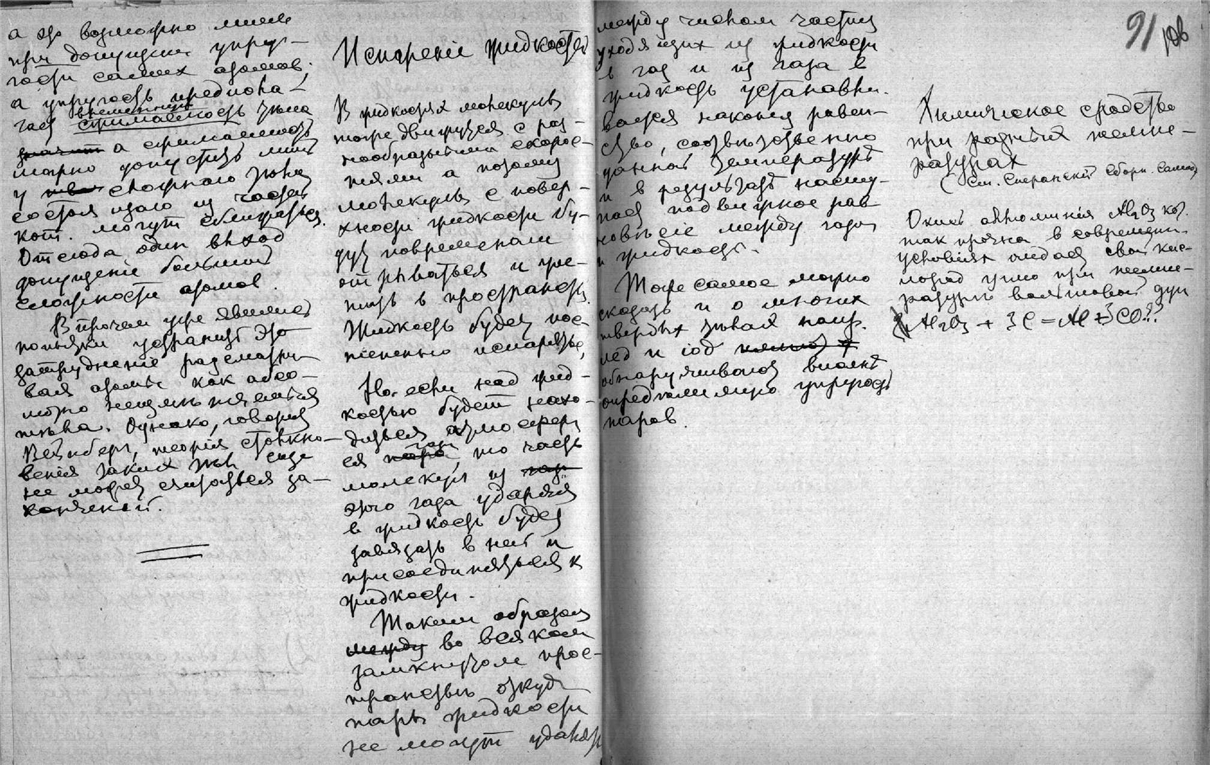 а это возможно лишь
при допущении упру-
гости самих атомов.
а упругость предпола-
гает внутреннюю
сжимаемость тела
значит а сжимаемость
можно допустить лишь
у тел сложного тела
состоящего из частей
кот. могут сближаться.
Отсюда один выход
допущение большой
сложности атомов.
Впрочем уже явились
попытки устранить это
затруднение рассматри-
вая атомы как абсо-
лютно
тела. Однако, говорит
Вейнберг, теория столкно-
вения таких тел еще
не может считаться за-
конченной.
Испарение жидкостей
В жидкостях молекулы
тоже движутся с раз-
нообразными скорос-
тями а потому
молекулы с повер-
хности жидкости бу-
дут повременам
отрываться и уле-
тать в пространств.
Жидкость будет пос-
тепенно испаряться,
Но если над жид-
костью будет нахо-
диться атмосфера
ея пара газа, то часть
молекул из газ
этого газа ударяясь
в жидкость будет
завязать в ней и
присоединяться к
жидкости.
Таким образом
между во всяком
замкнутом прос-
транстве откуда
пары жидкости
не могут удалят
между числом частиц
уходящих из жидкости
в газ и из газа в
жидкость установи-
вается наконец равен-
ство, соответственно
данной температуре
и в результате насту-
пает подвижное рав-
новесие между газом
и жидкостью.
Тоже самое можно
сказать и о многих
твердых телах напр.
лед и iод
обнаруживают вполне
определимую упругость
паров.
91
Химическое сродство
при разных темпе-
ратурах
(См. Сперанский Сборн.
Окись алюминия Al2O3 кот.
так прочна в современн.
условиях отдает свой кис-
лород углю при темпе-
ратуре вольтовой дуги
Al2O3 + 3C = Al + 3CO??